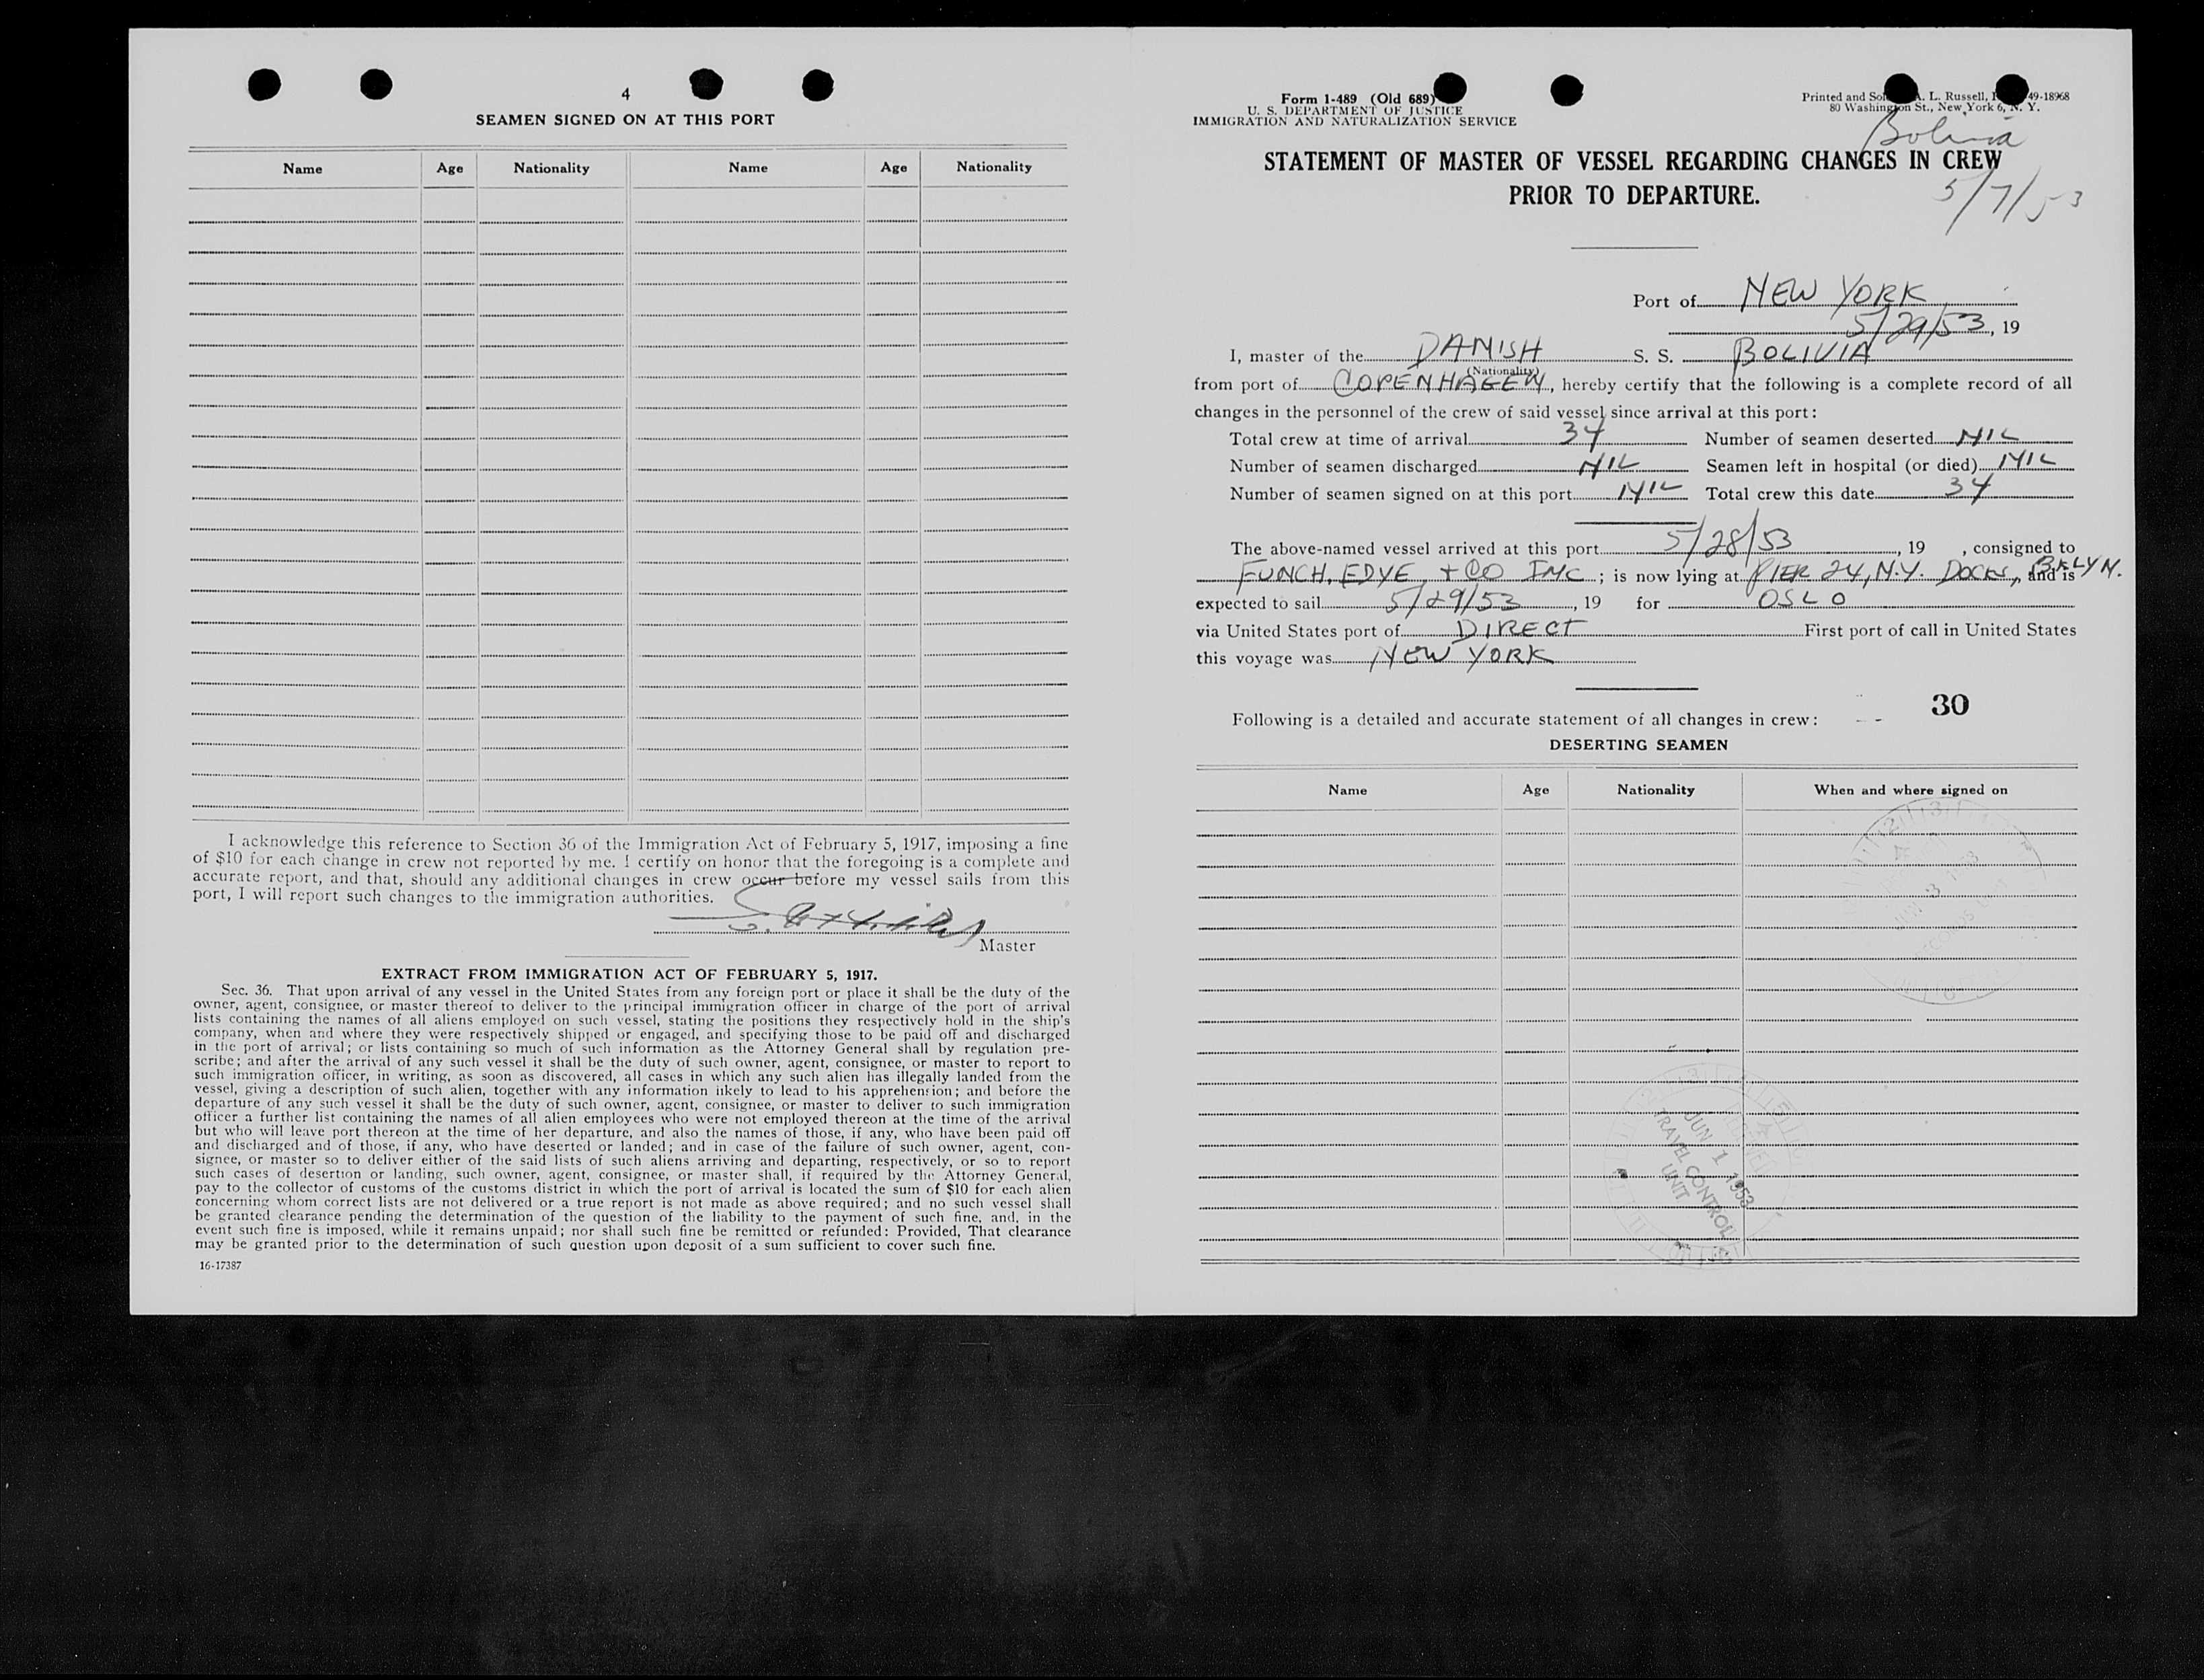 4
SEAMEN SIGNED ON AT THIS PORT
Name Age Nationality Name Age Nationality
I acknowledge this reference to Section 36 of the Immigration Act of February 5, 1917, imposing a fine
of $10 for each change in crew not reported by me. I certify on honor that the foregoing is a complete and
accurate report, and that, should any additional changes in crew occur before my vessel sails from this
port, I will report such changes to the immigration authorities.
Master
EXTRACT FROM IMMIGRATION ACT OF FEBRUARY 5, 1917.
Sec. 36. That upon arrival of any vessel in the United States from any foreign port or place it shall be the duty of the
owner, agent, consignee, or master thereof to deliver to the principal immigration officer in charge of the port of arrival
lists containing the names of all aliens employed on such vessel, stating the positions they respectively hold in the ship's
company, when and where they were respectively shipped or engaged, and specifying those to be paid off and discharged
in the port of arrival; or lists containing so much of such information as the Attorney General shall by regulation pre-
scribe; and after the arrival of any such vessel it shall be the duty of such owner, agent, consignee, or master to report to
such immigration officer, in writing, as soon as discovered, all cases in which any such alien has illegally landed from the
vessel, giving a description of such alien, together with any information likely to lead to his apprehension; and before the
departure of any such vessel it shall be the duty of such owner, agent, consignee, or master to deliver to such immigration
officer a further list containing the names of all alien employees who were not employed thereon at the time of the arrival
but who will leave port thereon at the time of her departure, and also the names of those, if any, who have been paid off
and discharged and of those, if any, who have deserted or landed; and in case of the failure of such owner, agent, con-
signee, or master so to deliver either of the said lists of such aliens arriving and departing, respectively, or so to report
such cases of desertion or landing, such owner, agent, consignee, or master shall, if required by the Attorney General,
pay to the collector of customs of the customs district in which the port of arrival is located the sum of $10 for each alien
concerning whom correct lists are not delivered or a true report is not made as above required; and no such vessel shall
be granted clearance pending the determination of the question of the liability to the payment of such fine, and, in the
event such fine is imposed, while it remains unpaid; nor shall such fine be remitted or refunded: Provided, That clearance
may be granted prior to the determination of such question upon deposit of a sum sufficient to cover such fine.
16-17387
Form 1-489 (Old 689)
U. S. DEPARTMENT OF JUSTICE
IMMIGRATION AND NATURALIZATION SERVICE
Printed and L. Russell, 49-18968
80 Washington St., New York 6, N. Y.
Bolivia
STATEMENT OF MASTER OF VESSEL REGARDING CHANGES IN CREW
PRIOR TO DEPARTURE.
5/7/53
Port of NEW YORK
5/29/53, 19
I, master of the DANISH S. S. BOLIVIA
(Nationality)
from port of COPENHAGEN, hereby certify that the following is a complete record of all
changes in the personnel of the crew of said vessel since arrival at this port:
Total crew at time of arrival 34 Number of seamen deserted NIL
Number of seamen discharged NIL Seamen left in hospital (or died) NIL
Number of seamen signed on at this port NIL Total crew this date 34
The above-named vessel arrived at this port 5/28/53, 19 , consigned to
FUNCH, EDYE, + CO INC; is now lying at PIER 24, N.Y. DOCKS, BKLYN. and is
expected to sail 5/29/53, 19 for OSLO
via United States port of DIRECT First port of call in United States
this voyage was NEW YORK
30
Following is a detailed and accurate statement of all changes in crew:
DESERTING SEAMEN
Name Age Nationality When and where signed on
JUN 1 1953
TRAVEL CONTROL
UNIT